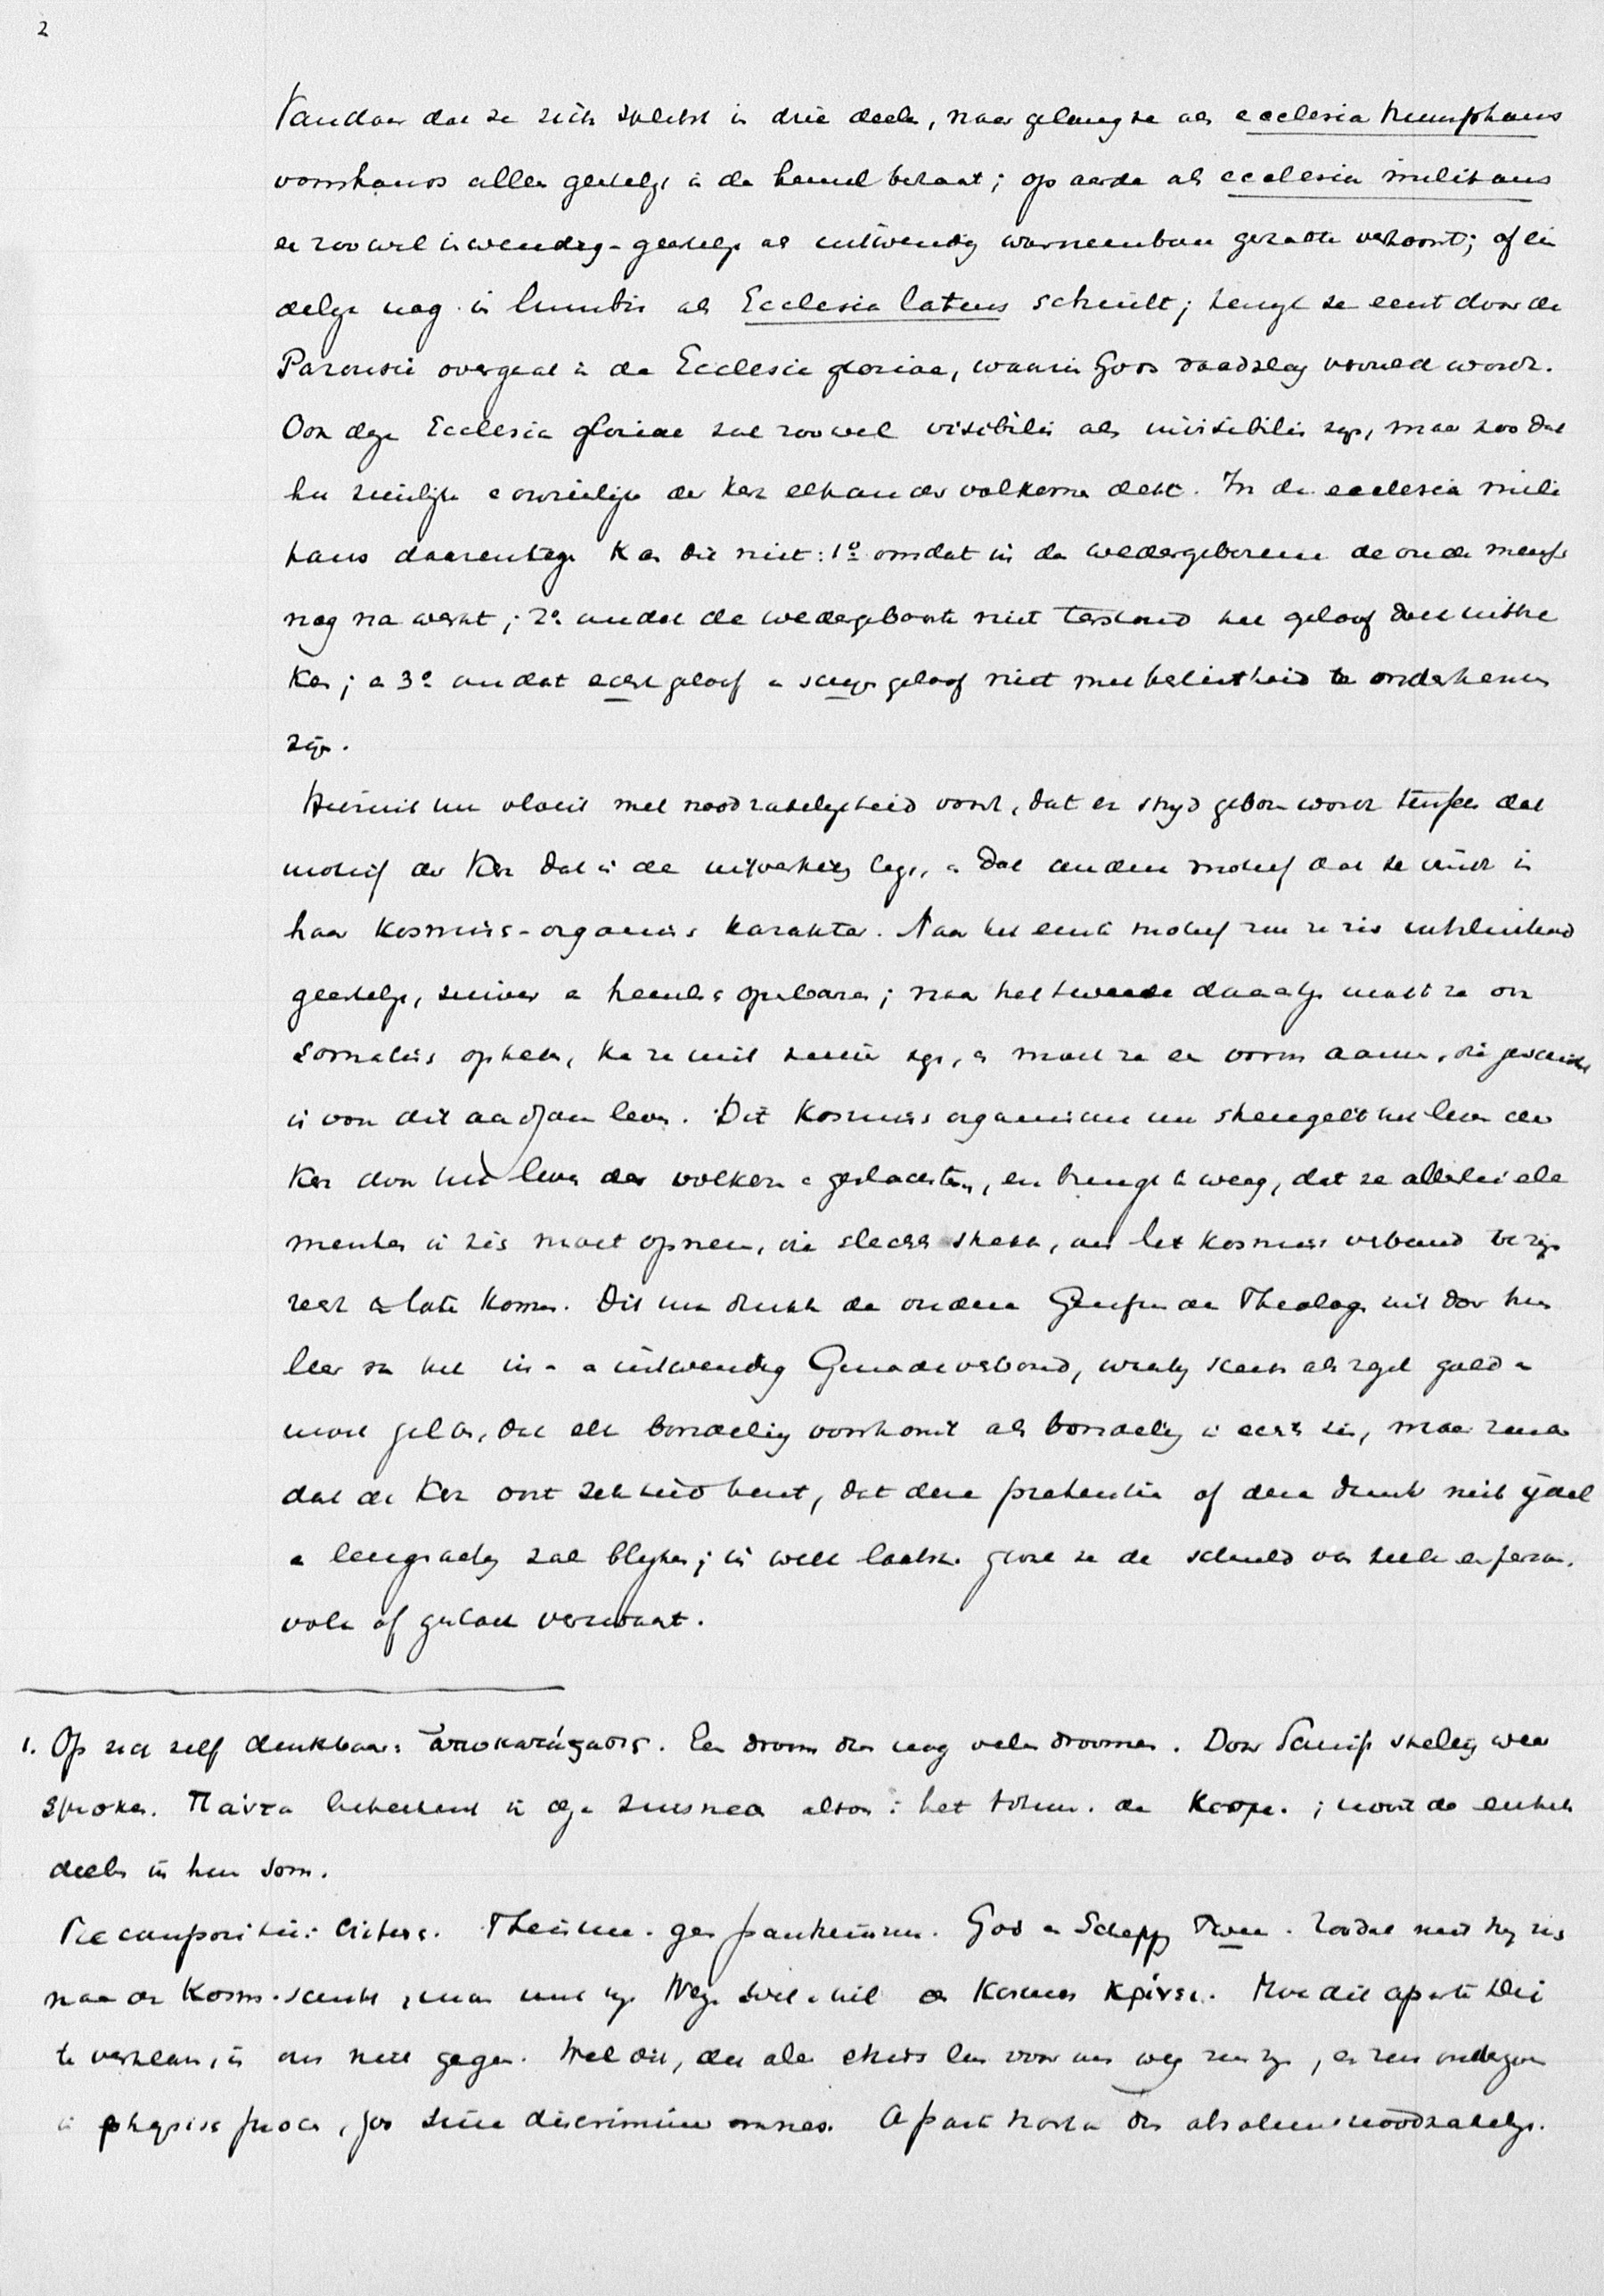 2
Vandaar dat ze zich splitst in drie deelen, naar gelang ze als ecclesia triumphans
voorshands alleen geestelijk in de hemel bestaat; op aarde als ecclesia militans
een zoowel inwendig-geestelijke als uitwendig waarneembare gestalte vertoont; of ein
delijk nog in lumbis als Ecclesia latens schuilt; terwijl ze eerst door de
Parousie overgaat in de Ecclesia gloriae, waarin Gods raadslag vervuld wordt.
Ook deze Ecclesia gloriae zal zoowel visibilis als invisibilis zijn, maar zoo dat
het zienlijke en onzienlijke der Kerk elkander volkomen dekt. In de ecclesia mili
tans daarentegen kan dit niet: 1º omdat in de wedergeborene de oude mensch
nog na werkt; 2º omdat de wedergeboorte niet terstond het geloof doet uitkomen
kan; en 3º omdat echt geloof en schijn geloof niet met beslistheid te onderkennen
zijn.
Hieruit nu vloeit met noodzakelijkheid voort, dat er strijd geboren wordt tusschen dat
motief der Kerk dat in de uitverkiezing ligt, en dat andere motief dat ze vindt in
haar kosmisch-organisch karakter. Naar het eerste motief zou ze zich uitsluitend
geestelijk, zuiver en heilig openbaren; naar het tweede daarentegen moet ze ook
somatisch optreden, kan ze niet zuiver zijn, en moet ze een vorm aannemen, die geschikt
is voor dit aardsche leven. Dit kosmisch organisme nu strengelt het leven der
Kerk door het leven der volken en geslachten, en brengt te weeg, dat ze allerlei ele
menten in zich moet opnemen, die slechts strekken, om het kosmisch verband tot zijn
recht te laten komen. Dit nu drukten de oudere Gereformeerde Theologen uit door hun
leer van het in- en uitwendig Genadeverbond, waarbij steeds als regel gold en
moet gelden, dat elk bondeling voorkomt als bondeling in echten zin, maar zonder
dat de Kerk ooit zekerheid heeft, dat deze pretentie of deze dunk niet ijdel
en leugenachtig zal blijken; in welk laatste geval ze de schuld van zulk een persoon,
volk of geslacht verzwaart.
1. Op zich zelf denkbaar: ἀποκατάστασις. Een droom dien nog velen droomen. Door Schrift stellig weer
sproken. Πάντα beteekent in deze zinsneden altoos: het totum. de Kosmos; nooit de enkele
deelen in hun som.
Recompositie: Criteria. Theïsme. geen pantheïsme. God en Schepping Twee. Zoodat niet hij zich
naar den Kosmos schikt, maar met zijn Heiligen wil den Kosmos κρίνει. Hoe dit aparte Dei
te verklaren, is ons niet gegeven. Wel dit, dat alle ethisch leven voor ons weg zou zijn, en zou ondergaan
in physisch proces, zoo sine discrimine omnes. Aparte nostra dus absolute noodzakelijk.